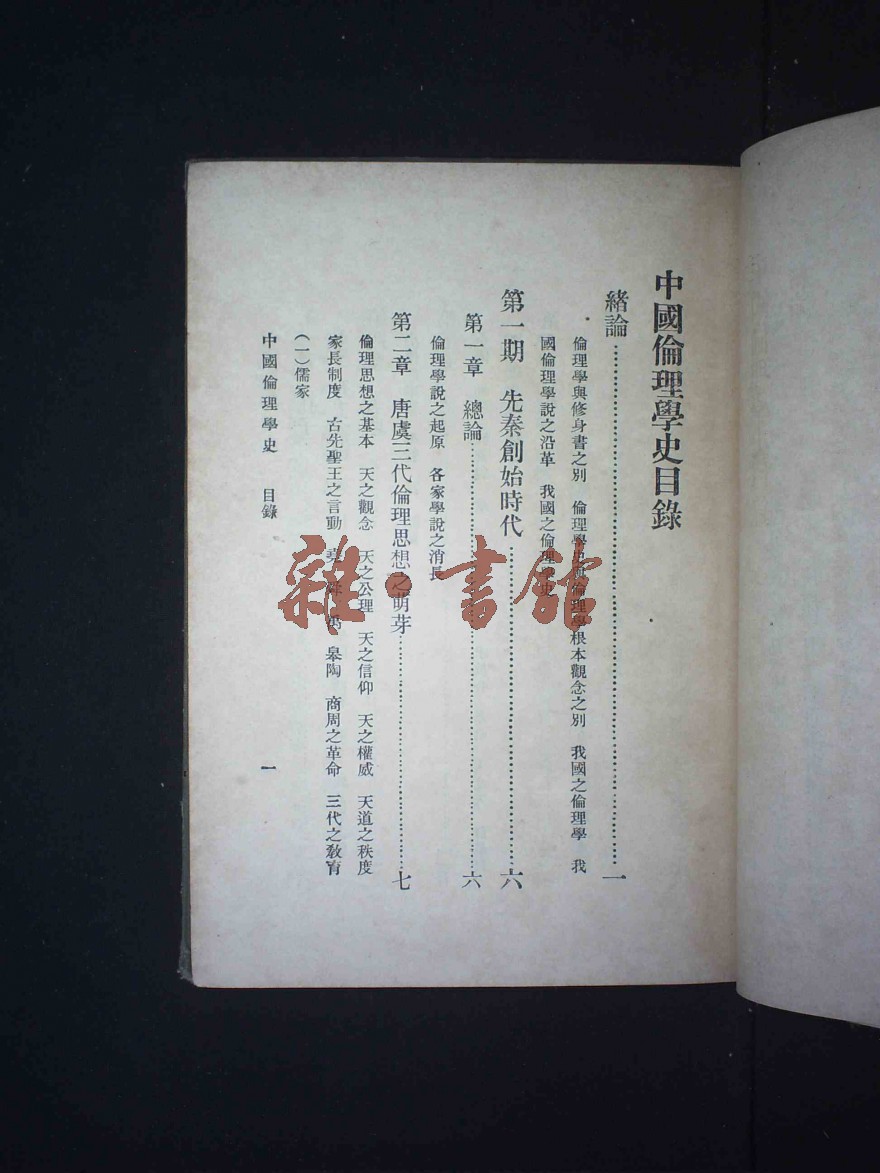 中國倫理學史目錄
緒論……………………………一
倫理學與修身書之別　倫理學史與倫理學根本觀念之別　我國之倫理學　我
國倫理學說之沿革　我國之倫理學史
第一期　先秦創始時代……………………………六
第一章　總論……………………………六
倫理學說之起原　各家學說之消長
第二章　唐虞三代倫理思想之萌芽……………………………七
倫理思想之基本　天之觀念　天之公理　天之信仰　天之權威　天道之秩度
家長制度　古先聖王之言動　堯　舜　禹　皋陶　商周之革命　三代之敎育
(一)儒家
中國倫理學史　目錄
一
雜·書館